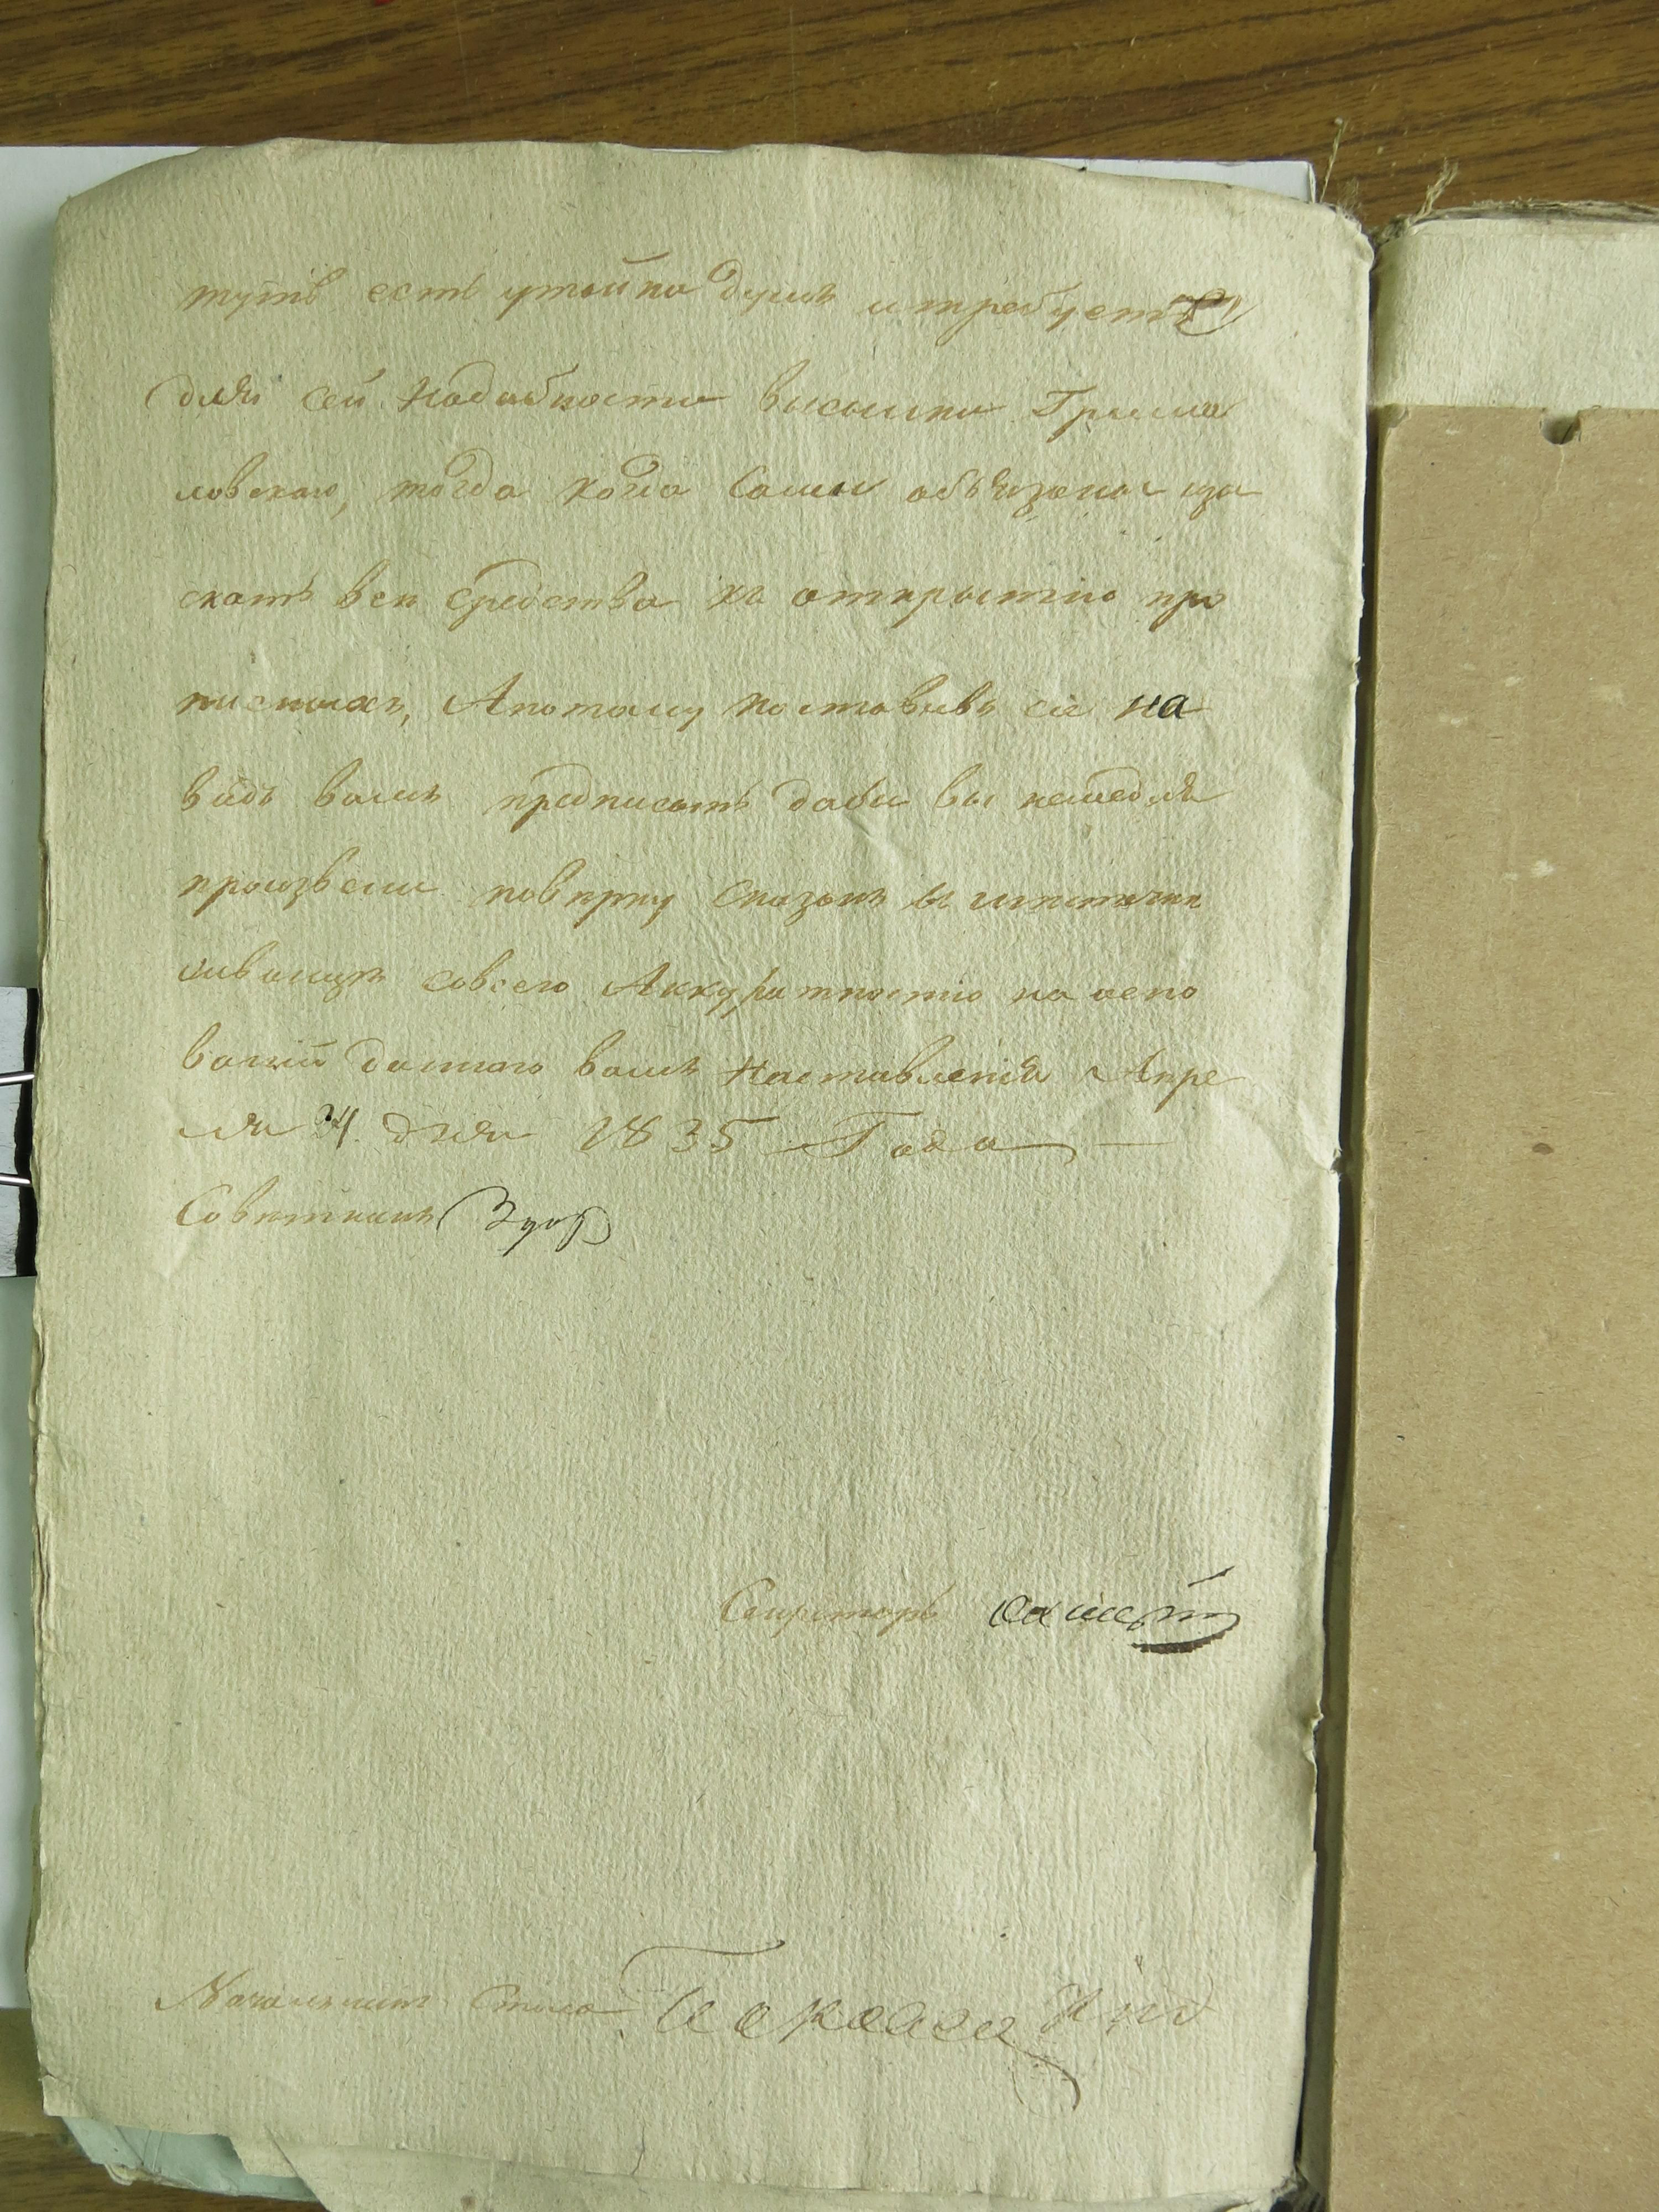 тутъ есть утайка душъ и требуете
для сей надобности высылки Грима
ловскаго, тогда когда сами обязаны изы
скать всѣ средства къ открытію про
писныхъ, А потому поставивъ сіе на
видъ вамъ предписать дабы вы немедля
произвели повѣрку сказокъ
совсею Аккуратностію на осно
ваніи даннаго вамъ наставленія Апре
ля 4 дня 1835 Года
Совѣтникъ
Секретарь
Начальникъ Стола